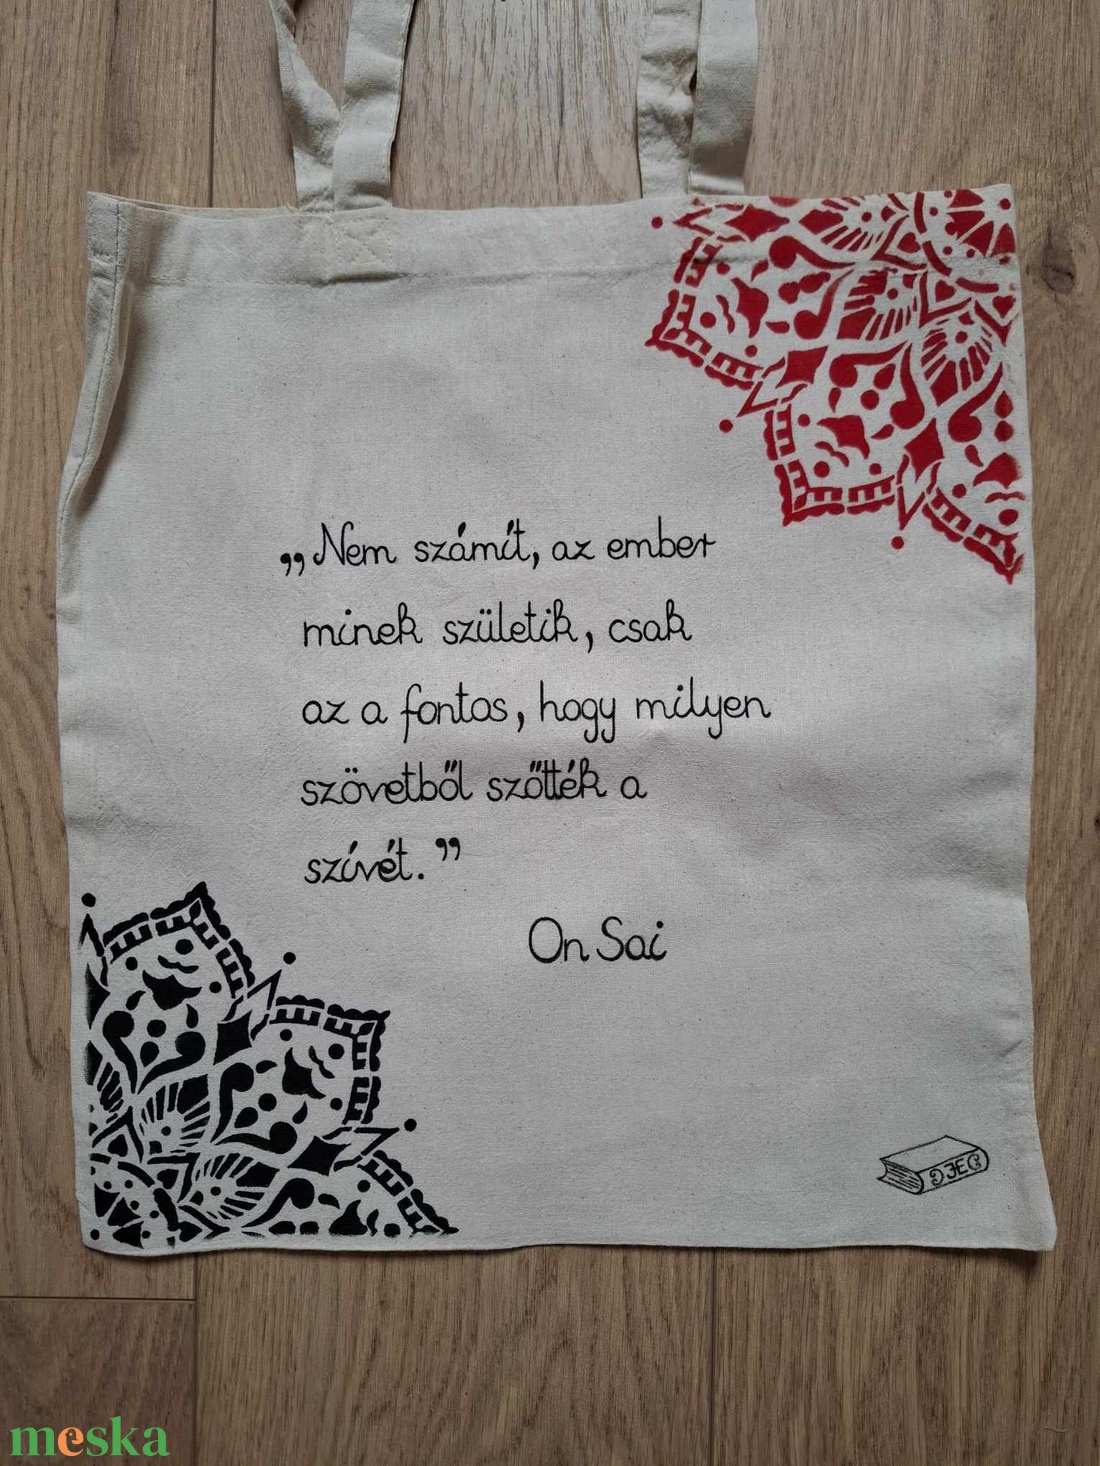 „Nem számít, az ember
minek születik, csak
az a fontos, hogy milyen
szövetből szőtték a
szívét.”
On Sai
meska